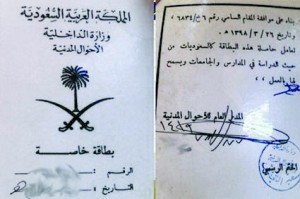 المملكة العربية السعودية
وزارة الداخلية
الأحوال المدنية
بطاقة خاصة
الرقم :
التاريخ :
بناء على موافقة المقام السامي رقم
وتاريخ
تعامل حاملة هذه البطاقة كالسعوديات من
حيث الدراسة في المدارس والجامعات ويسمح
لها بالعمل ،،
المدير العام للأحوال المدنية
الختم الرسمي